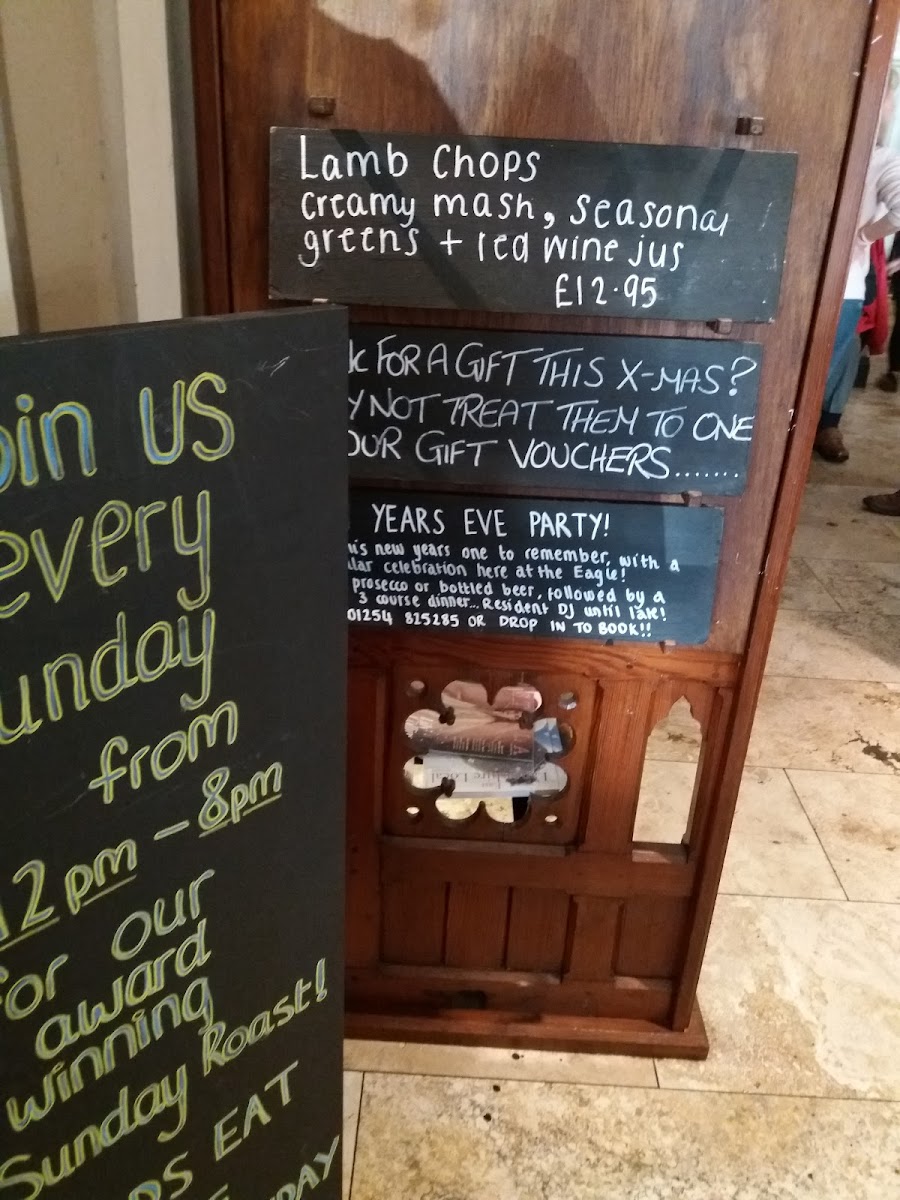 Lamb Chops
creamy mash, seasonal
greens + red wine jus
£12.95
FOR A GIFT THIS X-MAS?
NOT TREAT THEM TO ONE
OUR GIFT VOUCHERS.......
YEARS EVE PARTY!
new years one to remember, with a
celebration here at the Eagle!
prosecco or bottled beer, followed by a
3 course dinner... Resident DJ until late!
01254 825285 OR DROP IN TO BOOK!!
oin US
every
unday
from
12pm - 8pm
for our
award
winning
Sunday Roast!
EAT